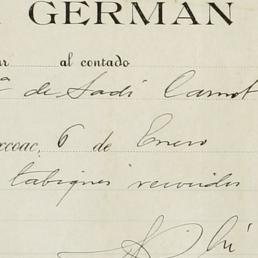 GERMAN
al contado
de Sadi Carnot
xcoac, 6 de Enero
tabiques recocidos